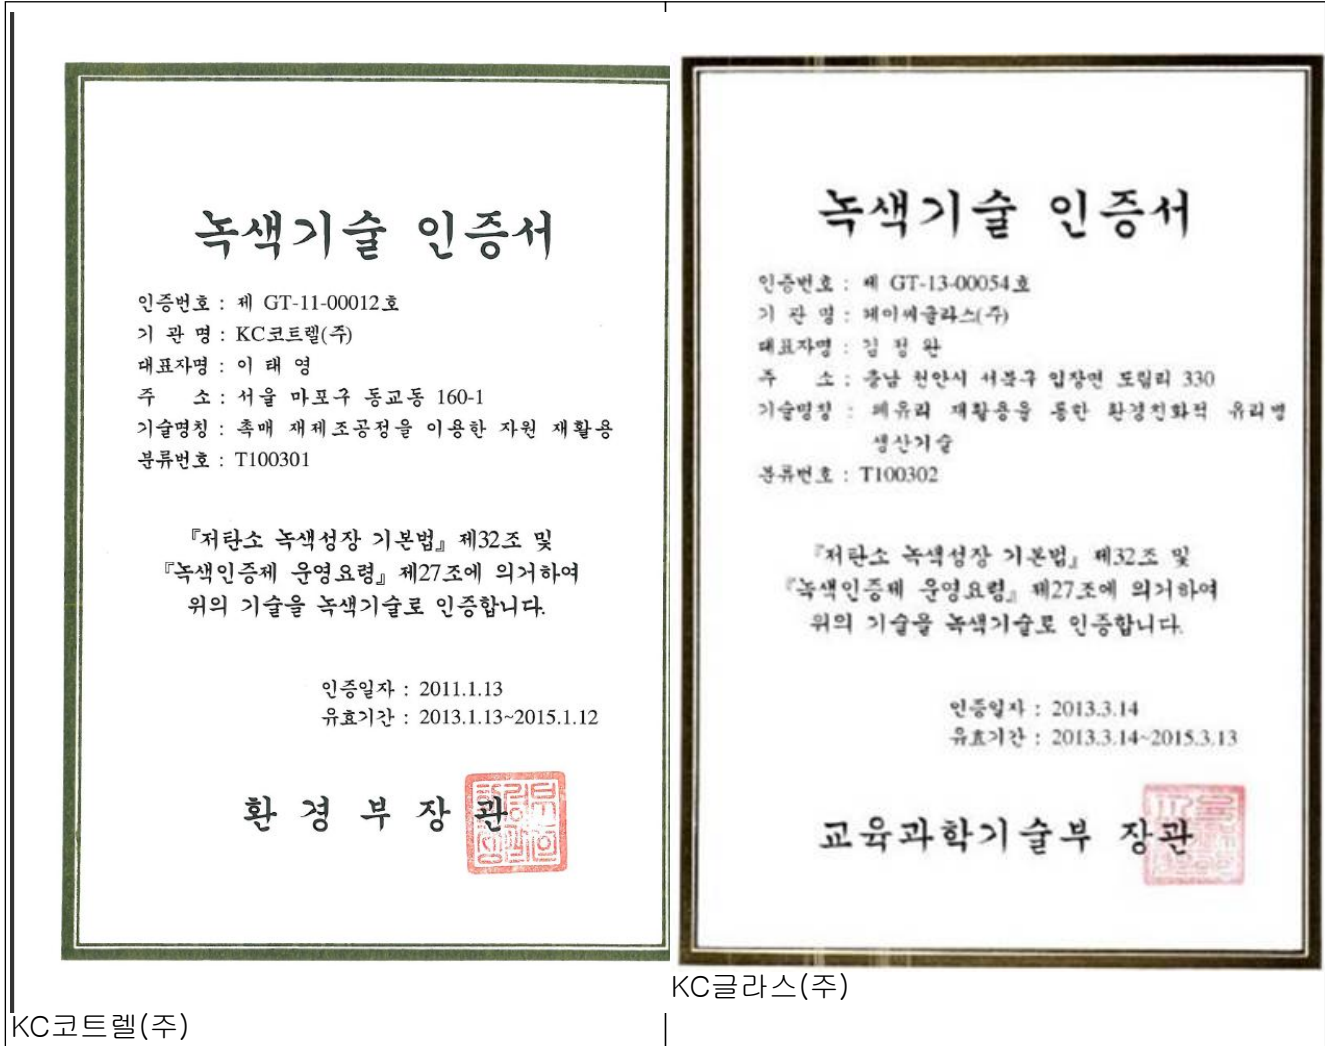 녹색기술 인증서
인증번호 : 제 GT-11-00012호
기 관 명 : KC코트렐(주)
대표자명 : 이 태 영
주 소 : 서울 마포구 동교동 160-1
기술명칭 : 촉매 재제조공정을 이용한 자원 재활용
분류번호 : T100301
『저탄소 녹색성장 기본법』 제32조 및
『녹색인증제 운영요령』 제27조에 의거하여
위의 기술을 녹색기술로 인증합니다.
인증일자 : 2011.1.13
유효기간 : 2013.1.13~2015.1.12
환 경 부 장 관
KC코트렐(주)
녹색기술 인증서
인증번호 : 제 GT-13-00054호
기 관 명 : 케이씨글라스(주)
대표자명 : 김 정 완
주 소 : 충남 천안시 서북구 입장면 도림리 330
기술명칭 : 폐유리 재활용을 통한 환경친화적 유리병
생산기술
분류번호 : T100302
『저탄소 녹색성장 기본법』 제32조 및
『녹색인증제 운영요령』 제27조에 의거하여
위의 기술을 녹색기술로 인증합니다.
인증일자 : 2013.3.14
유효기간 : 2013.3.14~2015.3.13
교육과학기술부 장관
KC글라스(주)